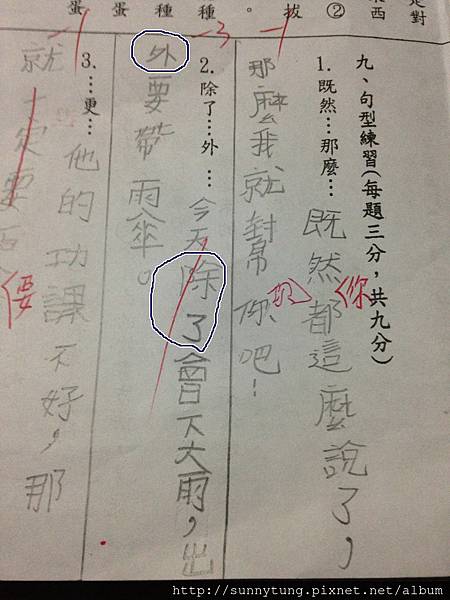 是對
東西
②
拔
。
種
種
蛋
蛋
-3
九、句型練習(每題三分，共九分)
1.既然…那麼… 既然都這麼說了，
你
那麼我就幫你吧!
2.除了…外… 今天除了會下大雨，出
外要帶雨傘。
3.…更… 他的功課不好，那
就一定要
http://sunnytung.pixnet.net/album